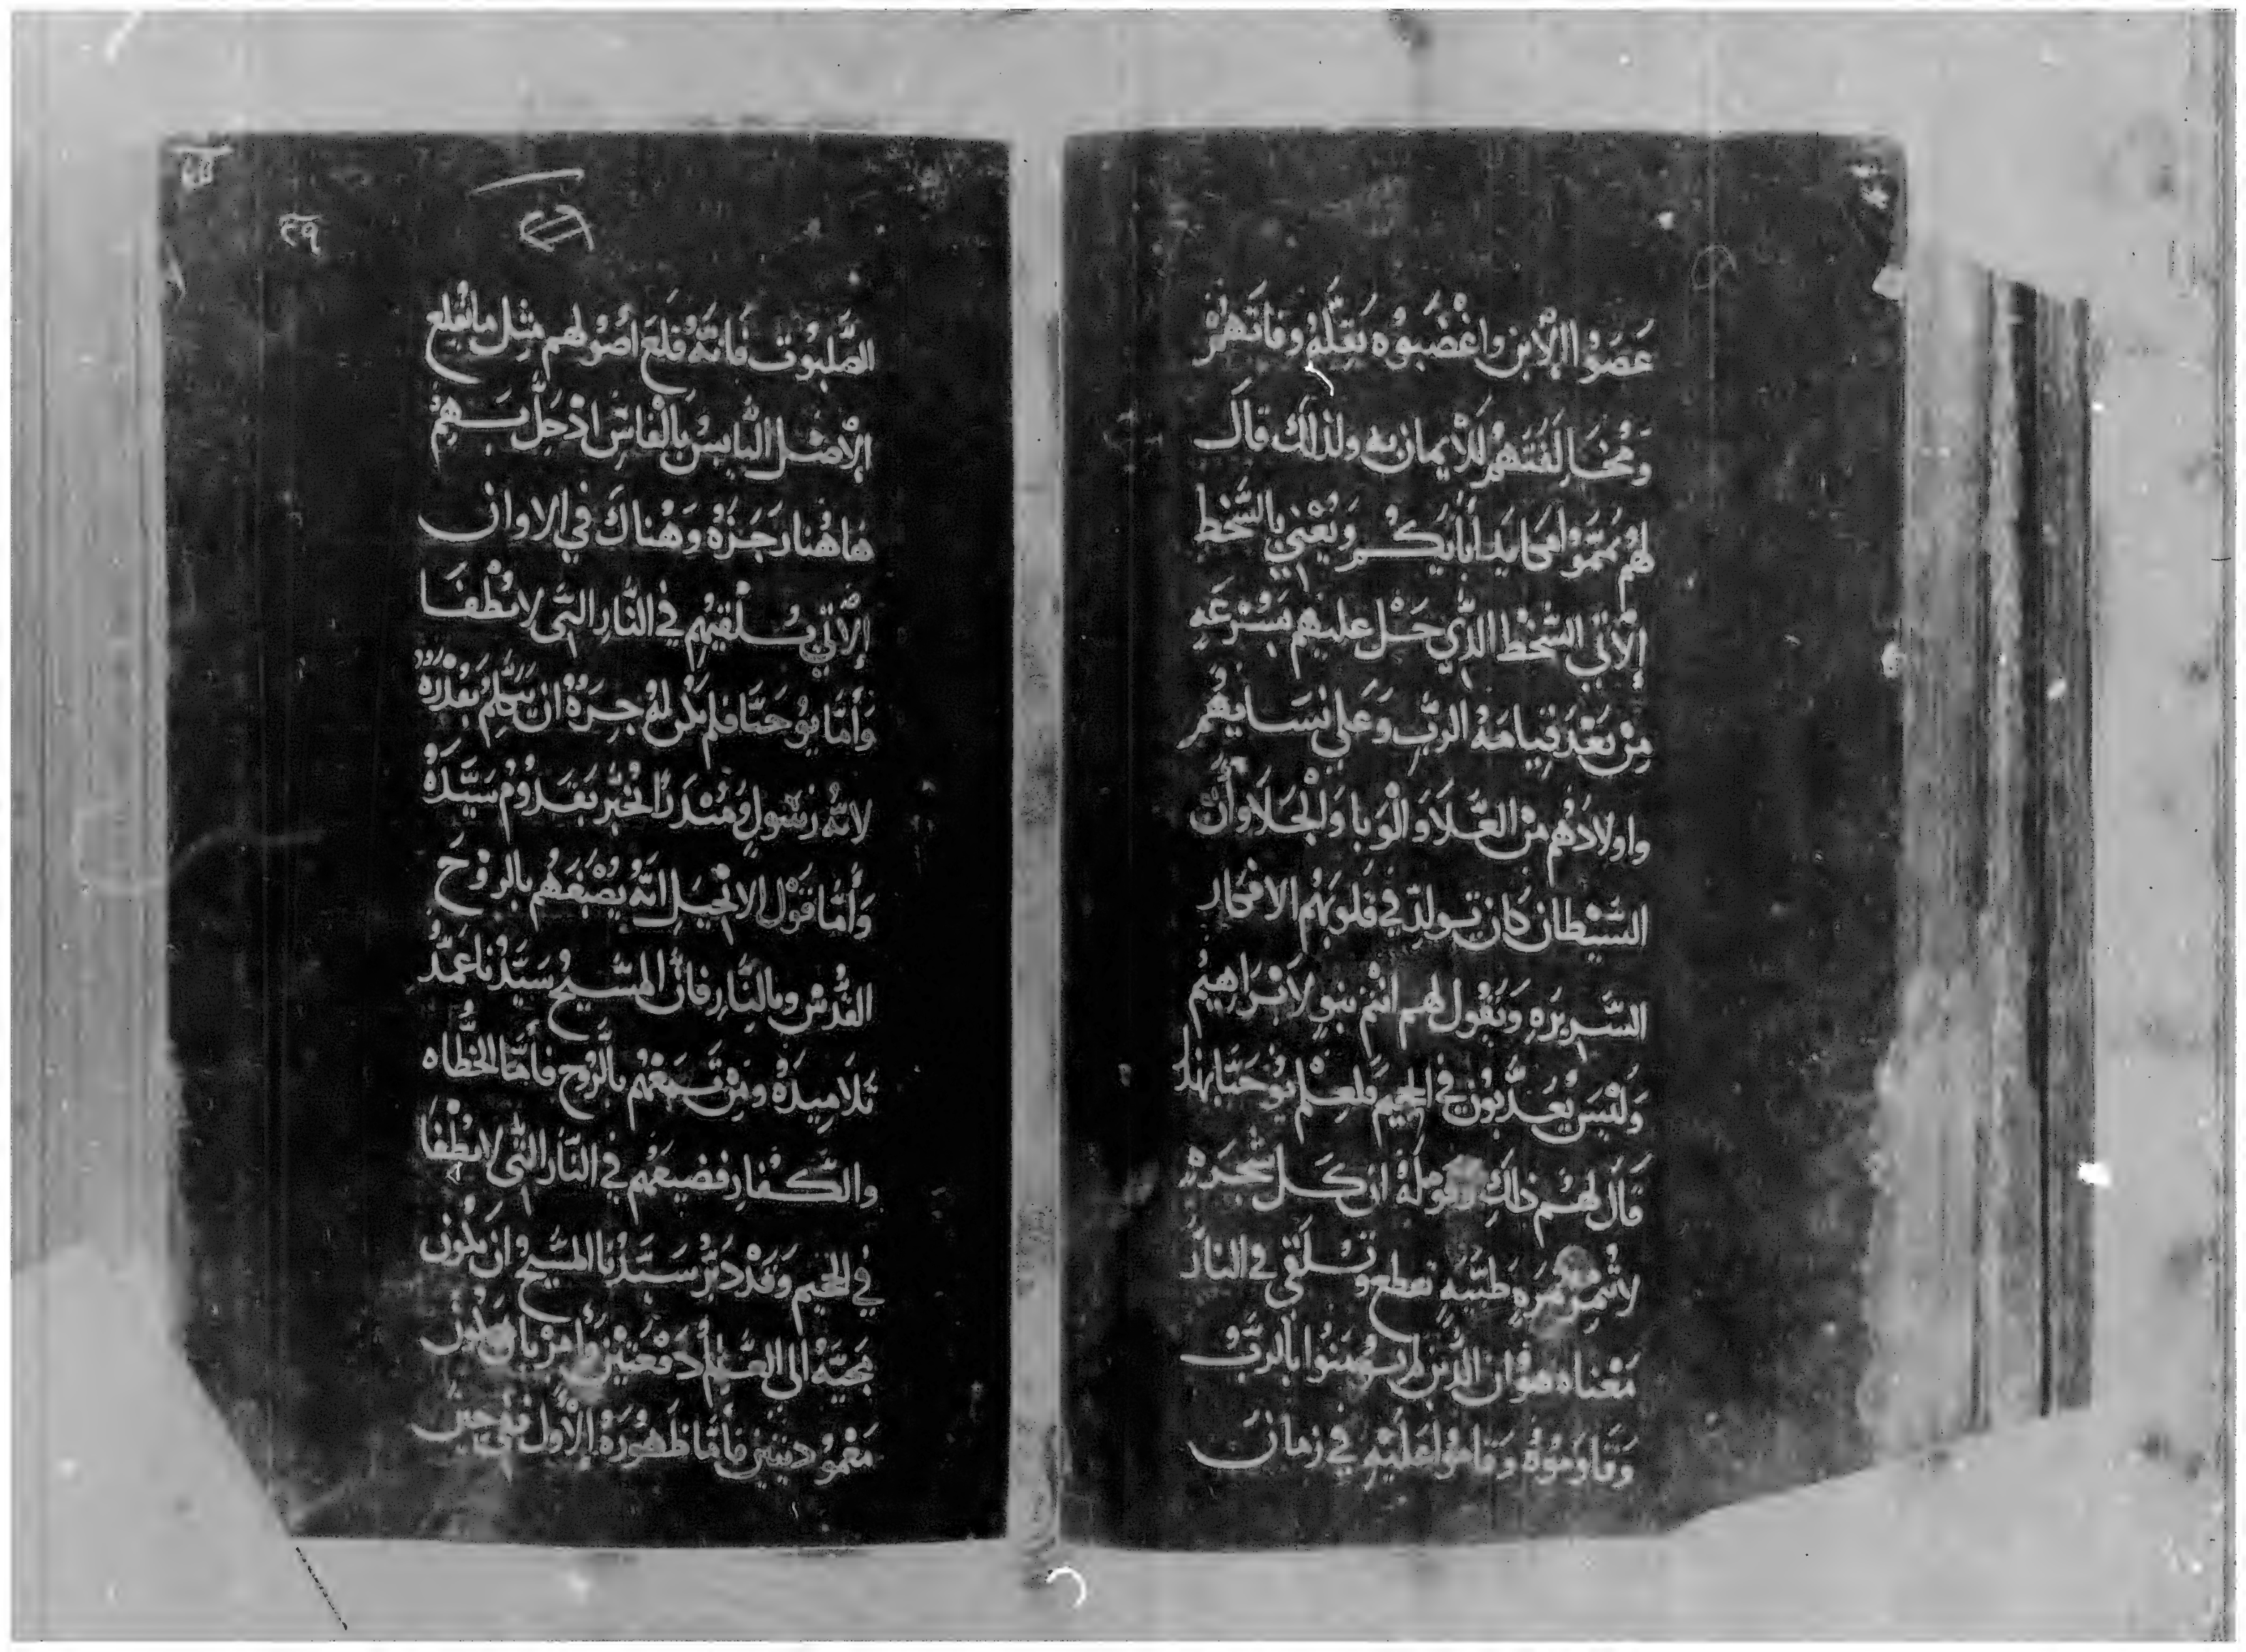 عَصَوُا الإبن واغْضَبوُه بقَتلِهم وفاتهم
ومُخالَفَتهم للايمان به ولذلك قال
لهُم
الآتي السُّخط الذي حَل عليهم بسُرعَه
مِن بَعْد قِيامَة الرَبّ وعَلى نسَايهُم
واولادَهُم من الغَلا والوَبا والجَلا وأن
الشيطان كان تولد في قلوبهُم الافكار
الشريرَه وَيَقُول لهم انتم بنو لابراهيم
وَليْسَ يُعَذبُون في الجحيم فلعِلم يُوحَنّا بهذا
قالَ لهُم ذلك وقوله ان كل شجرَه
لا تثمر ثمره طيبه تقطع وتلقى في النار
مَعْناه هُو ان الذين لم يومنوا بالرَبّ
وقاوَموُه وَقامُوا عَليْه في زمان
٢٩
الصَّلبُوت فانّه قلعَ اصُولهم مِثل ما تقلع
الاصْل اليابسْ بالفاسِ اذ حَلّ بهم
هَاهُنا رجزه وَهُناك في الاوان
الآتي سيُلقيهُم في النّار التي لا تطفَا
وَأمّا يُوحَنّا فلم تكن له
لانه رَسُولٍ ومُنذر الخُبر بقدُوم سَيّدَه
وَأمّا قَوْل الانجيل انّهُ يَصْبغهُم بالروُحَ
القُدُسْ وبالنّار فان المسَّيح سَيّدُنا عَمّدُ
تلاميذهُ ومَن تبعهُم بالرُوح فأمّا الخطاه
والكفار فضيعهُم في النّار التي لا تطفا
في الجحيم وَقدْ دبَّر سَيَّدُنا المسَّيح ان يكون
مجيّهُ الى العَالم دفعَتين وأمر بان تكون
مَعْموُديتين فأمّا ظهُورَهُ الأوّل ففي حين